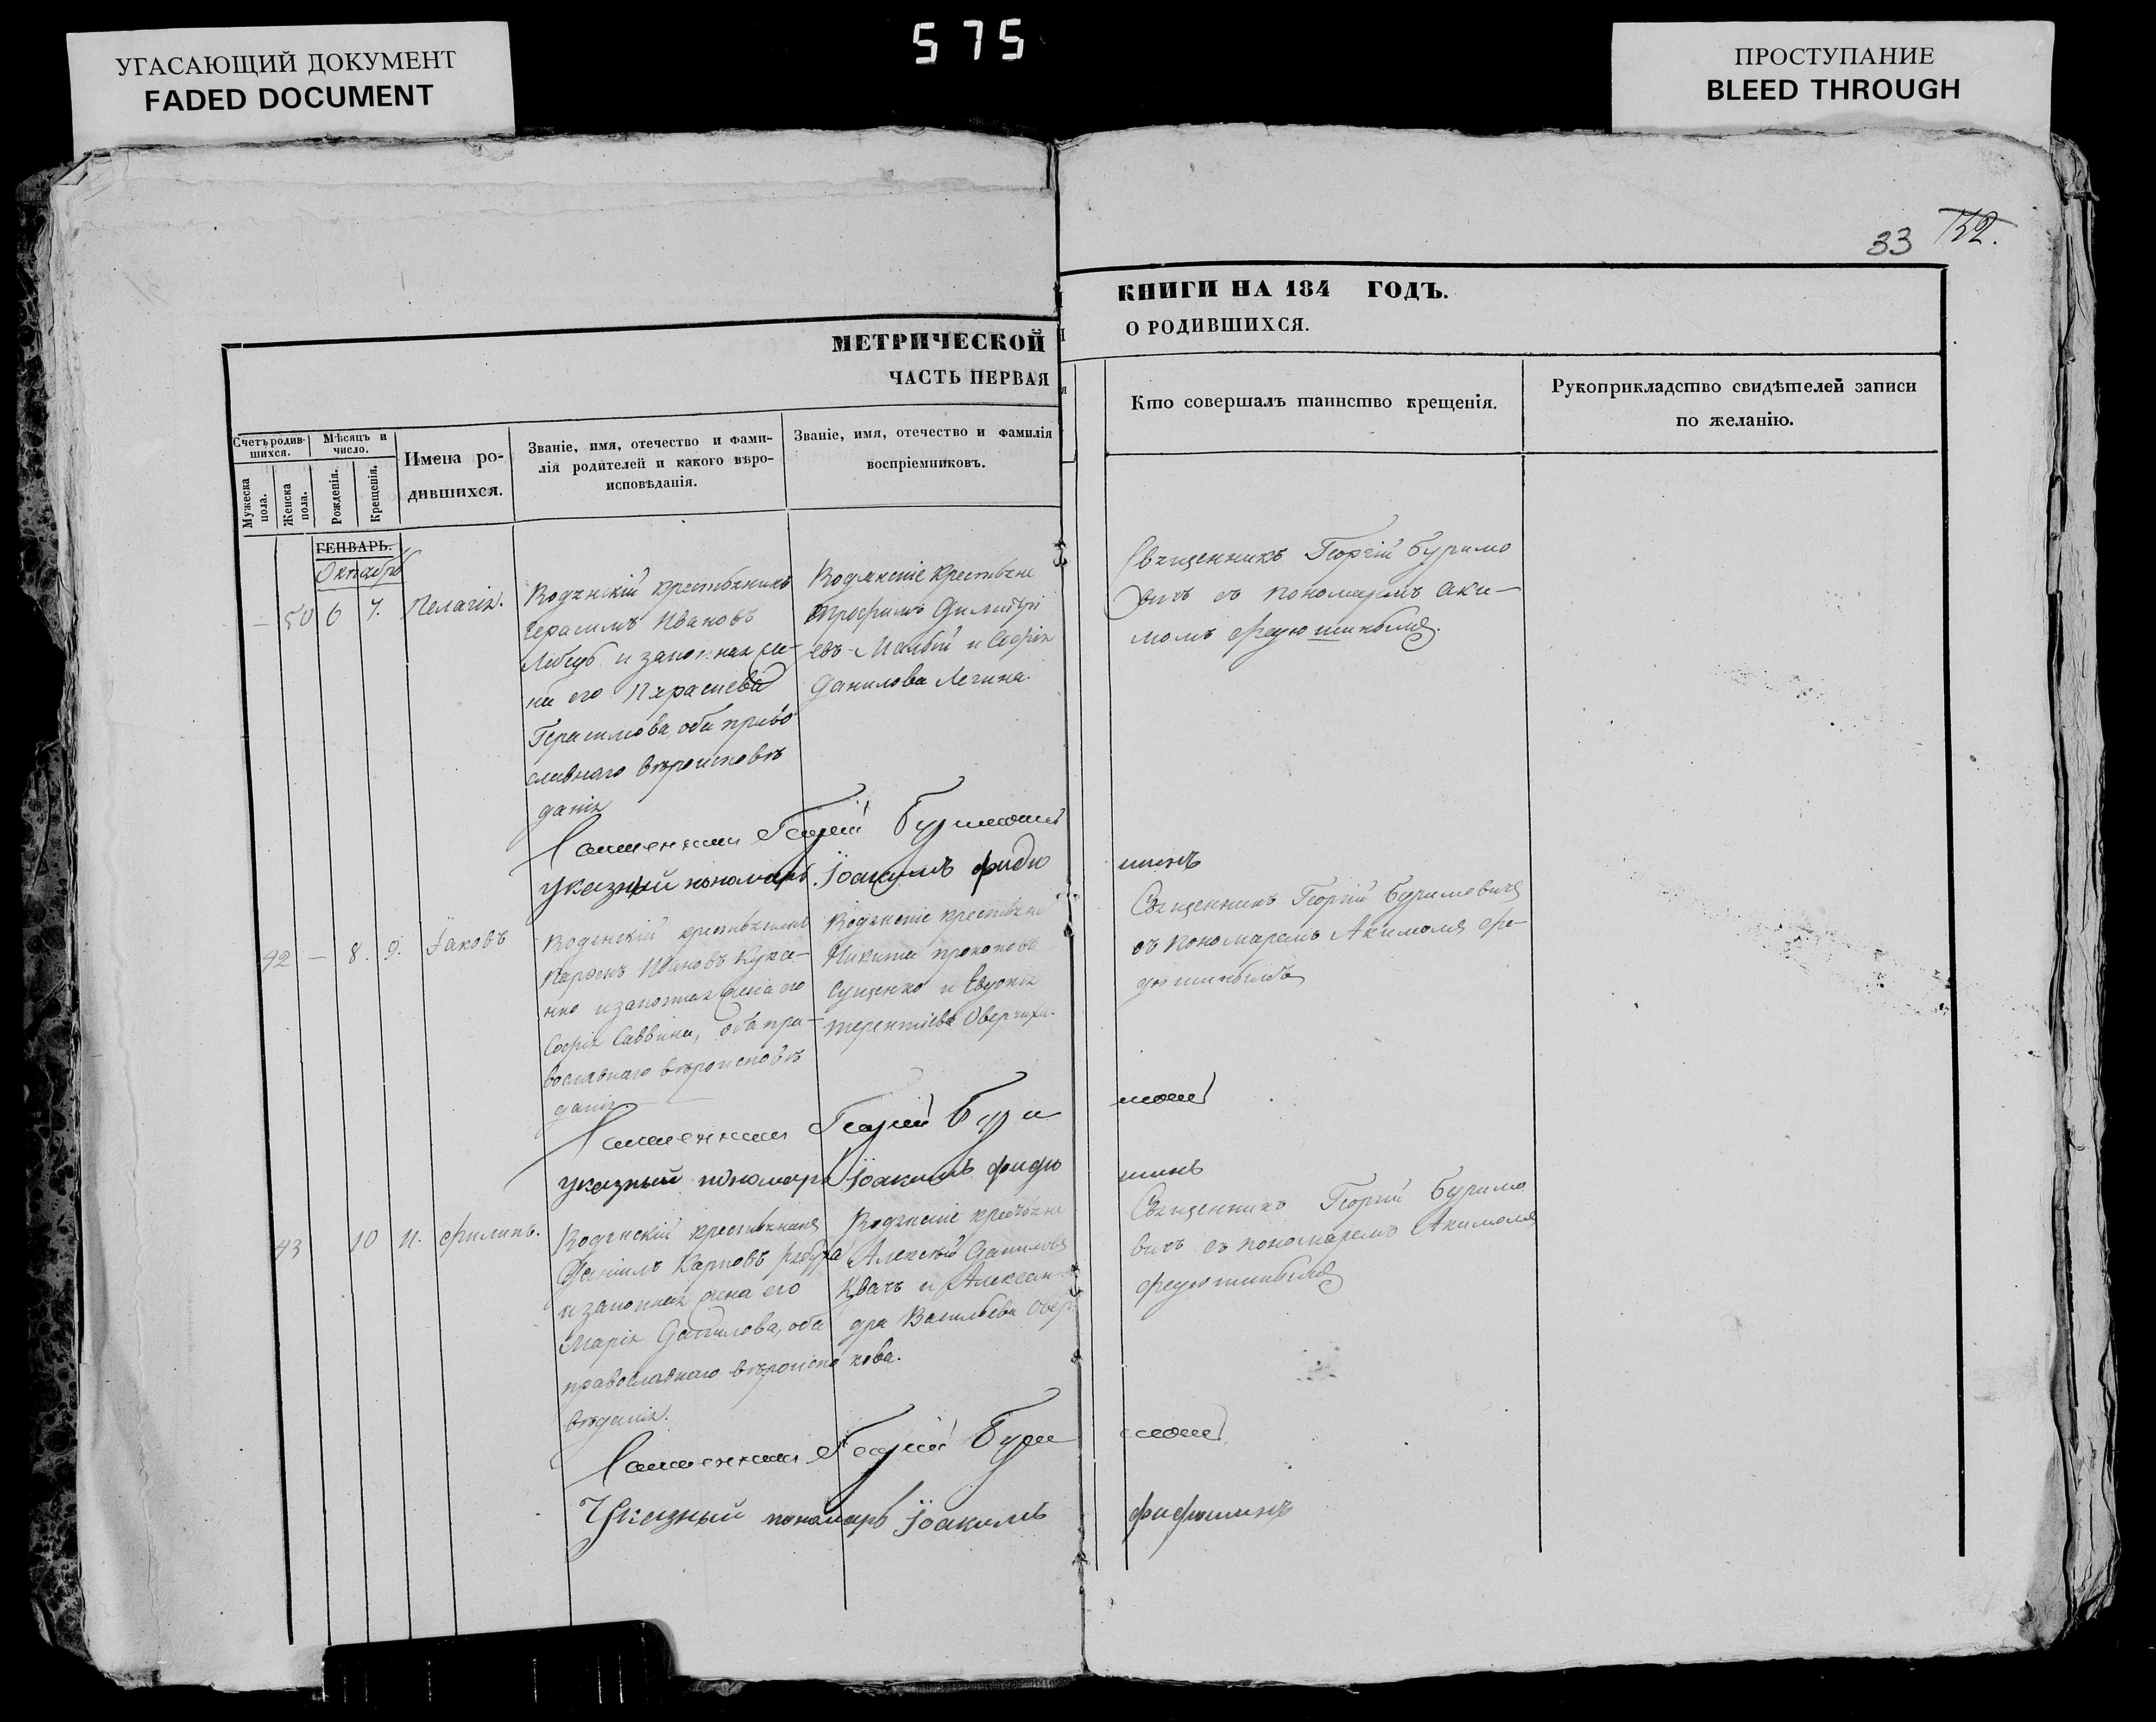 УГАСАЮЩИЙ ДОКУМЕНТ
FADED DOCUMENT
575
ПРОСТУПАНИЕ
BLEED THROUGH
33 132.
МЕТРИЧЕСКОЙ
ЧАСТЬ ПЕРВАЯ
КНИГИ НА 184 ГОДЪ.
О РОДИВШИХСЯ.
Счетъ родив-
шихся.
Мужеска
пола.
Женска
пола.
Мѣсяцъ и
число.
Рожденія.
Крещенія.
Имена ро-
дившихся.
Званіе, имя, отечество и фами-
лія родителей и какого вѣро-
исповѣданія.
Званіе, имя, отечество и фамилія
воспріемниковъ.
Кто совершалъ таинство крещенія.
Рукоприкладство свидѣтелей записи
по желанію.
ГЕНВАРЬ.
Октабрь
— 50 6 7. Пелагія.
Водянскій крестьянинъ
Герасимъ Ивановъ
Лебедь и законная же-
на его Параскева
Герасимова, оба право
славнаго вѣроисповѣ
данія
Водянскіе крестьяне
Трофимъ Димитрі
евъ и Софія
Данилова
Священникъ Георгій Буримо
вичъ съ пономаремъ Аки-
момъ Федюшинымъ.
Священникъ Георгій Буримовичъ
указный пономарь Іоакимъ Федю
шинъ
42 — 8. 9. Іаковъ
Водянскій крестьянинъ
Ивановъ
и законная жена его
Софія Саввина, оба пра-
вославнаго вѣроисповѣ
данія
Водянскіе крестьяне
Никита Прокоповъ
Сущенко и Евдокія
Терентіева Оверчиха.
Священникъ Георгій Буримовичъ
съ пономаремъ Акимомъ Фе-
дюшинымъ
Священникъ Георгій Бури
мовичъ
указный пономарь Іоакимъ Федю
шинъ
43 10 11. Филипъ.
Водянскій крестьянинъ
Даніилъ Карповъ
и законная жена его
Марія Данилова, оба
православнаго вѣроиспо
вѣданія.
Водянскіе крестьяне
Алексѣй Даниловъ
Квачъ и Алексан-
дра Васильева Овер
кова.
Священникъ Георгій Буримо
вичъ съ пономаремъ Акимомъ
Федюшинымъ
Священникъ Георгій Бури
мовичъ
Указный пономарь Іоакимъ
Федюшинъ